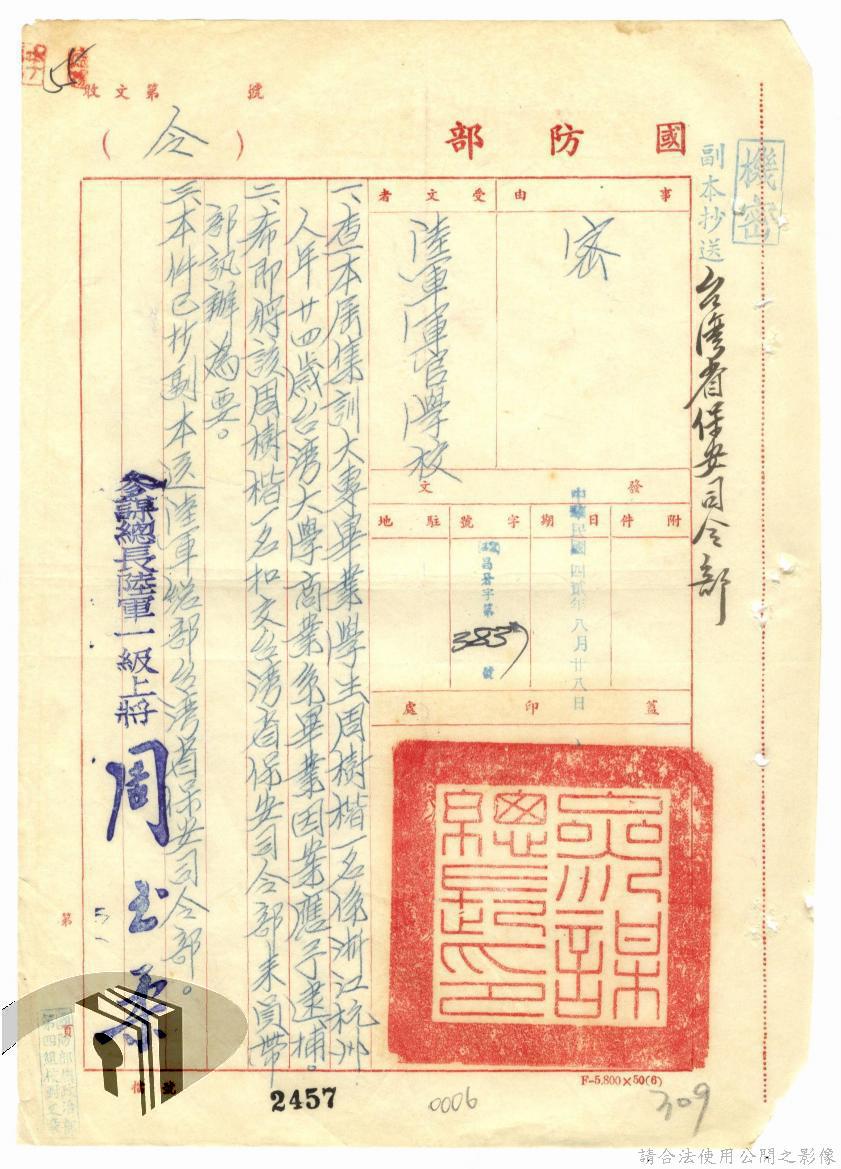 機密
副本抄送台湾省保安司令部
國防部
（令）
收文第 號
事由
密
受文者
陸軍軍官學校
發文
附件
日期
中華民國四貳年八月廿八日
字號
昌昇字第383號
駐地
蓋印處
參謀
總長印
一、查本届集訓大專畢業學生周樹楷一名係浙江杭州
人年廿四歲台湾大學商業系畢業因案應予逮捕。
二、希即將該周樹楷一名扣交台湾省保安司令部來員帶
部訊辦為要。
三、本件已抄副本送陸軍總部台湾省保安司令部。
參謀總長陸軍一級上將
周至柔
第
頁
檔號
2457
0006
F-5,800×50(6)
309
請合法使用公開之影像